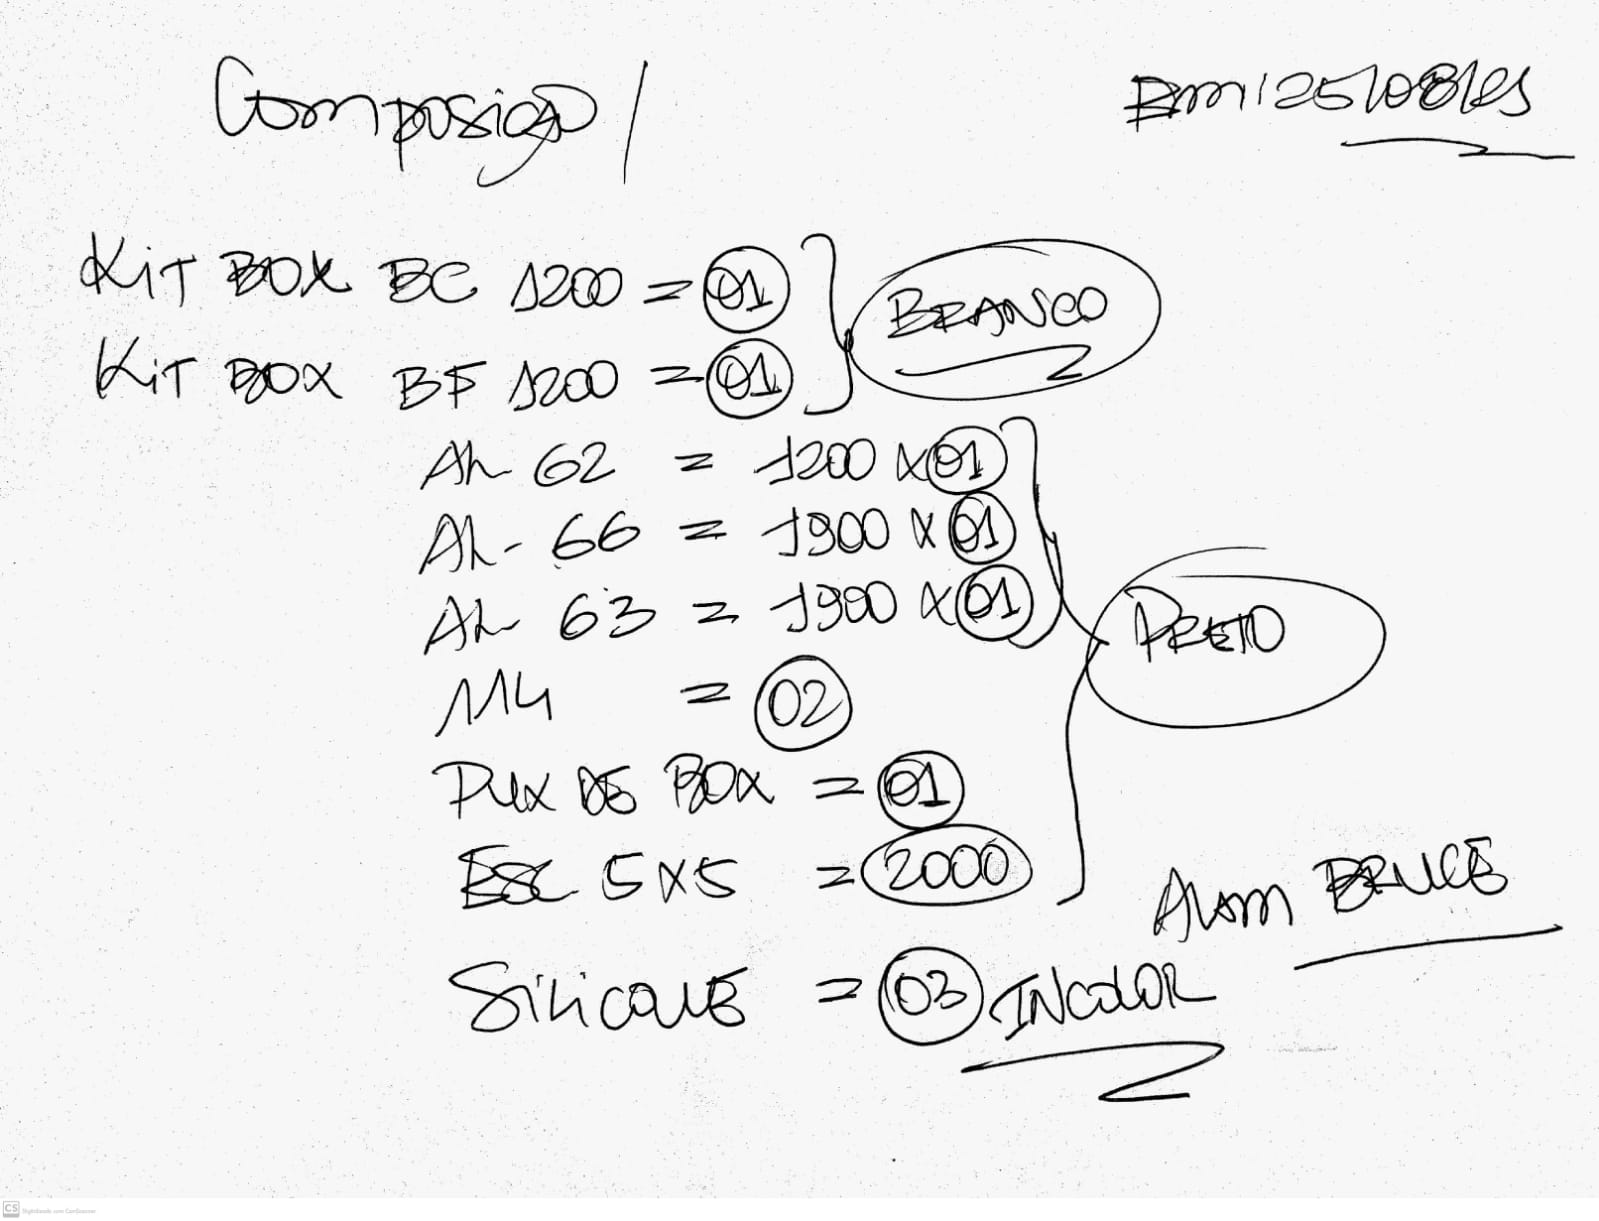 Composição /
Bm, 25/08/25
Kit BOX BC 1200 = 01
Kit BOX BF 1200 = 01
BRANCO
AL 62 = 1200 x 01
AL- 66 = 1900 x 01
AL 63 = 1900 x 01
PRETO
114 = 02
PUX DE BOX = 01
ESC 5x5 = 2000
ALAM BRUCE
SiLiCONE = 03 INCOLOR
CS Digitalizado com CamScanner